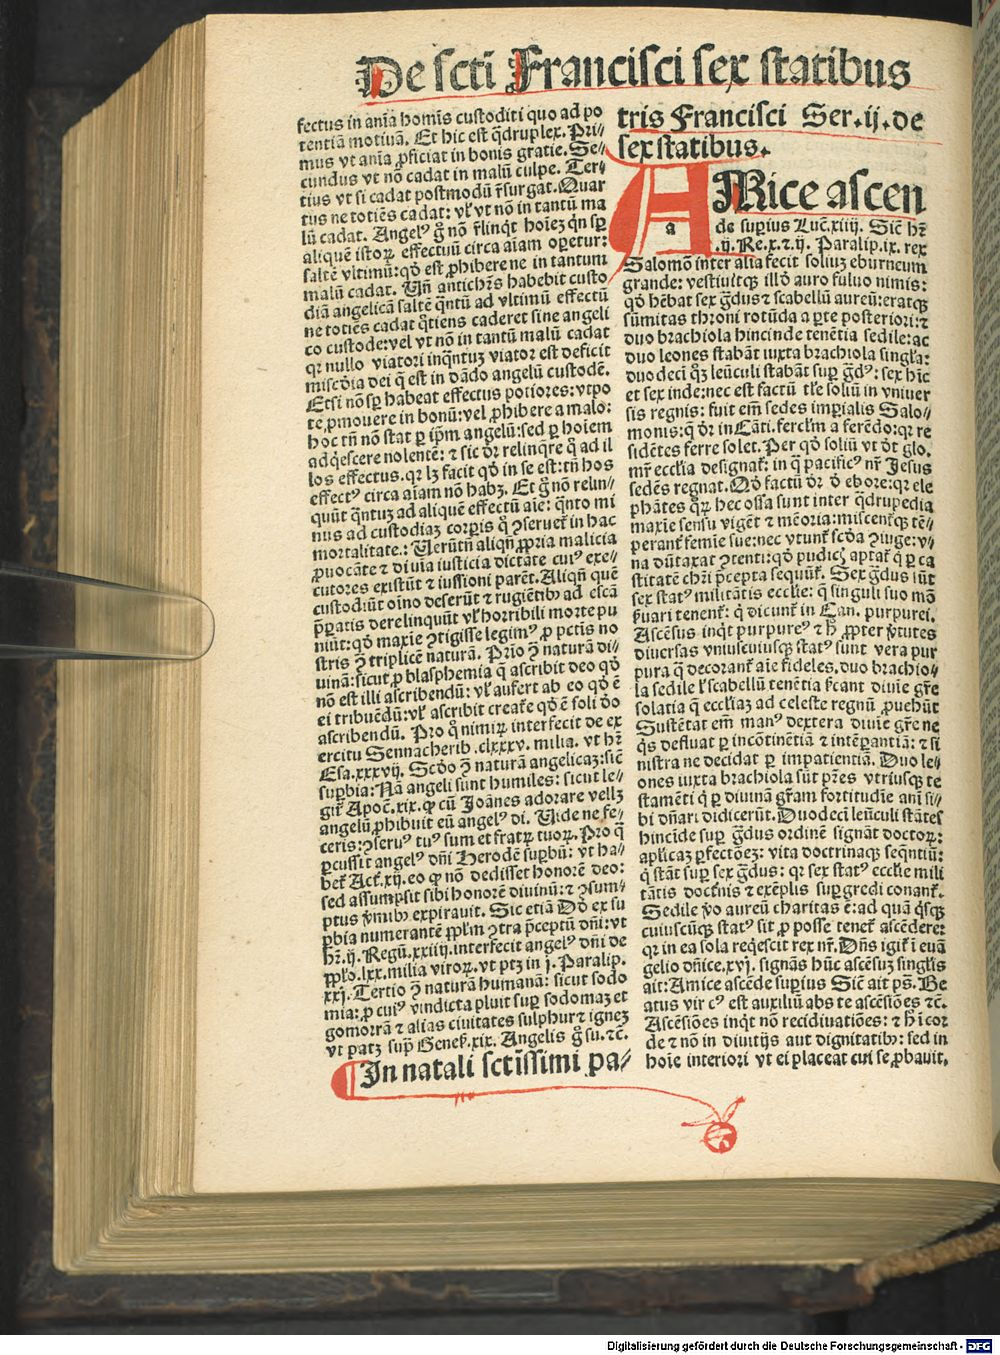 De scti Francisci sex statibus
fectus in aı̄a homı̄s custoditi quo ad po
tentiā motiuā. Et hic est q̄druplex. Pri⸗
mus vt aı̄a ꝓficiat in bonis gratie. Se⸗
cundus vt nō cadat in malū culpe. Ter⸗
tius vt si cadat postmodū r̄surgat. Quar
tus ne totiēs cadat: vl̓ vt nō in tantū ma
lū cadat. Angelꝰ g̊ nō r̄linqt hoı̄eꝫ qn sꝑ
aliquē istoꝝ effectuū circa aı̄am oꝑetur:
saltē vltimū: qd̓ est ꝓhibere ne in tantum
malū cadat. Uñ antichr̄s habebit custo
diā angelicā saltē q̄ntū ad vltimū effectū
ne totiēs cadat q̄tiens caderet sine angeli
co custode: vel vt nō in tantū malū cadat
qr nullo viatori inq̄ntuꝫ viator est deficit
misc̄dia dei q̄ est in dādo angelū custodē.
Etsi nō sꝑ habeat effectus potiores: vtpo
te ꝓmouere in bonū: vel ꝓhibere a malo:
hoc tñ nō stat ꝑ ip̄m angelū: sed ꝑ hoiem
adq̄escere nolentē: ⁊ sic dr̄ relinqre q̄ ad il
los effectus. qr lꝫ facit qd̓ in se est: tñ hos
effectꝰ circa aı̄am nō habꝫ. Et g̊ nō relin⸗
quūt q̄ntuꝫ ad aliquē effectū aı̄e: q̄nto mi
nus ad custodiaꝫ corꝑis q̄ ꝯseruet̄ in hac
mortalitate.: Uerūtñ aliqñ ꝓpria malicia
ꝓuocāte ⁊ diuı̄a iusticia dictāte cuiꝰ exe⸗
cutores existūt ⁊ iussioni parēt. Aliqñ quē
custodiūt oı̄no deserūt ⁊ rugiētibꝰ ad escā
p̄ꝑatis derelinquūt vl̓ horribili morte pu
niūt: qd̓ maxı̄e ꝯtigisse legimꝰ ꝓ pctı̄s no
stris ꝯ̄ triplicē naturā. Prı̄o ꝯ̄ naturā di⸗
uinā: sicut ꝓ blasphemia q̄ ascribit deo qd̓
nō est illi ascribendū: vl̓ aufert ab eo qd̓ ē
ei tribuēdū: vl̓ ascribit creat̄e qd̓ ē soli do
ascribendū. Pro q̊ nimiꝝ interfecit de ex
ercitu Sennacherib .clxxxv. milia. vt hr̄
Esa. xxxvij. Scd̓o ꝯ̄ naturā angelicaꝫ: sic̄
suꝑbia: Nā angeli sunt humiles: sicut le⸗
git̄ Apoc̄. xix. ꝙ cū Joānes adorare vellꝫ
angelū ꝓhibuit eū angelꝰ di. Uide ne fe⸗
ceris: ꝯseruꝰ tuꝰ sum et fratꝝ tuoꝝ. Pro q̄
ꝑcussit angelꝰ dñi Herodē suꝑbū: vt ha⸗
bet̄ Act̄. xij. eo ꝙ nō dedisset honorē deo:
sed assumpsit sibi honorē diuinū: ⁊ ꝯsum⸗
ptus v̓mibꝰ expirauit. Sic etiā Dd̓ ex su
ꝑbia numerantē ppl̄m ꝯtra p̄ceptū dñi: vt
hr̄. ij. Regū. xxiiij. interfecit angelꝰ dñi de
pplo̓. lxx. milia viroꝝ. vt ptꝫ in j. Paralip.
xxj. Tertio ꝯ̄ naturā humanā: sicut sodo
mia: ꝓ cuiꝰ vindicta pluit suꝑ sodomaꝫ et
gomorrā ⁊ alias ciuitates sulphur ⁊ igneꝫ
vt patꝫ supͥ Genes̄. xix. Angelis g̊ su. ⁊c̄.
¶ In natali sctı̄ssimi pa⸗
tris Francisci Ser. ij. de
sex statibus.
AMice ascen
a
de suꝑius Luc̄. xiiij. Sic̄ hr̄
.ij. Re. x. ⁊. ij. Paralip. ix. rex
Salomō inter alia fecit soliuꝫ eburneum
grande: vestiuitqꝫ illd̓ auro fuluo nimis:
qd̓ hēbat sex g̊dus ⁊ scabellū aureū: eratqꝫ
sūmitas throni rotūda a ꝑte posteriori: ⁊
duo brachiola hincinde tenētia sedile: ac
duo leones stabāt iuxta brachiola singl̓a:
duodeci q̊ꝫ leūculi stabāt suꝑ g̊dꝰ: sex hı̄c
et sex inde: nec est factū tl̓e soliū in vniuer
sis regnis: fuit em̄ sedes imꝑialis Salo⸗
monis: q̄ dr̄ in Cāti. fercl̓m a ferēdo: qr re
sidētes ferre solet. Per qd̓ soliū vt dt̓ glo.
mr̄ eccl̓ia designat̄: in q̄ pacificꝰ nr̄ Jesus
sedēs regnat. Qd̓ factū dr̄ d̓ ebore: qr ele
phātes q̊ꝝ hec ossa sunt inter q̄drupedia
maxı̄e sensu vigēt ⁊ mēoria: miscent̄qꝫ tē⸗
perant̄ femı̄e sue: nec vtunt̄ scd̓a ꝯiuge: v⸗
na dūtaxat ꝯtenti: qd̓ pudicꝫ aptat̄ q̇ ꝑ ca
stitatē chr̄i p̄cepta sequūt̄. Sex g̊dus sūt
sex statꝰ militātis eccl̓ie: q̄ singuli suo mō
p̓uari tenent̄: q̇ dicunt̄ in Can. purpurei.
Ascēsus inqt purpureꝰ ⁊ h̓ ꝓpter v̓tutes
diuersas vniuscuiusqꝫ statꝰ sunt vera pur
pura q̄ decorant̄ aı̄e fideles. duo brachio⸗
la sedile l̓ scabellū tenētia s̓cant diuı̄e gr̄e
solatia q̄ eccl̓iaꝫ ad celeste regnū ꝓuehūt
Sustētat em̄ manꝰ dextera diuı̄e gr̄e ne
q̇s defluat ꝑ incōtinētiā ⁊ intēꝑantiā: ⁊ si
nistra ne decidat ꝑ impatientiā. Duo le⸗
ones iuxta brachiola sūt pr̄es vtriusqꝫ te
stamēti q̇ ꝑ diuinā gr̄am fortitudı̄e anı̄ si⸗
bi dñari didicerūt. Duodeci leūculi stātes
hincı̄de suꝑ g̊dus ordinē signāt doctoꝝ:
apl̓icaꝫ ꝑfectōeꝫ: vita doctrinaqꝫ seq̄ntiū:
q̇ stāt suꝑ sex g̊dus: qr sex statꝰ eccl̓ie mili
tātis doctn̄is ⁊ exēplis suꝑgredi conant̄.
Sedile v̓o aureū charitas ē: ad quā q̇sqꝫ
cuiuscūqꝫ statꝰ sit ꝓ posse tenet̄ ascēdere:
qr in ea sola reqescit rex nr̄. Dñs igit̄ i euā
gelio dñice. xvj. signās hūc ascēsuꝫ singl̓is
ait: Amice ascēde suꝑius Sic̄ ait ps̄. Be
atus vir cꝰ est auxiliū abs te ascēsiōes ⁊c̄.
Ascēsiōes inqt nō recidiuatiōes: ⁊ h̓ i cor
de ⁊ nō in diuitijs aut dignitatibꝰ: sed in
hoı̄e interiori vt ei placeat cui se ꝓbauit,
Digitalisierung gefördert durch die Deutsche Forschungsgemeinschaft - DFG